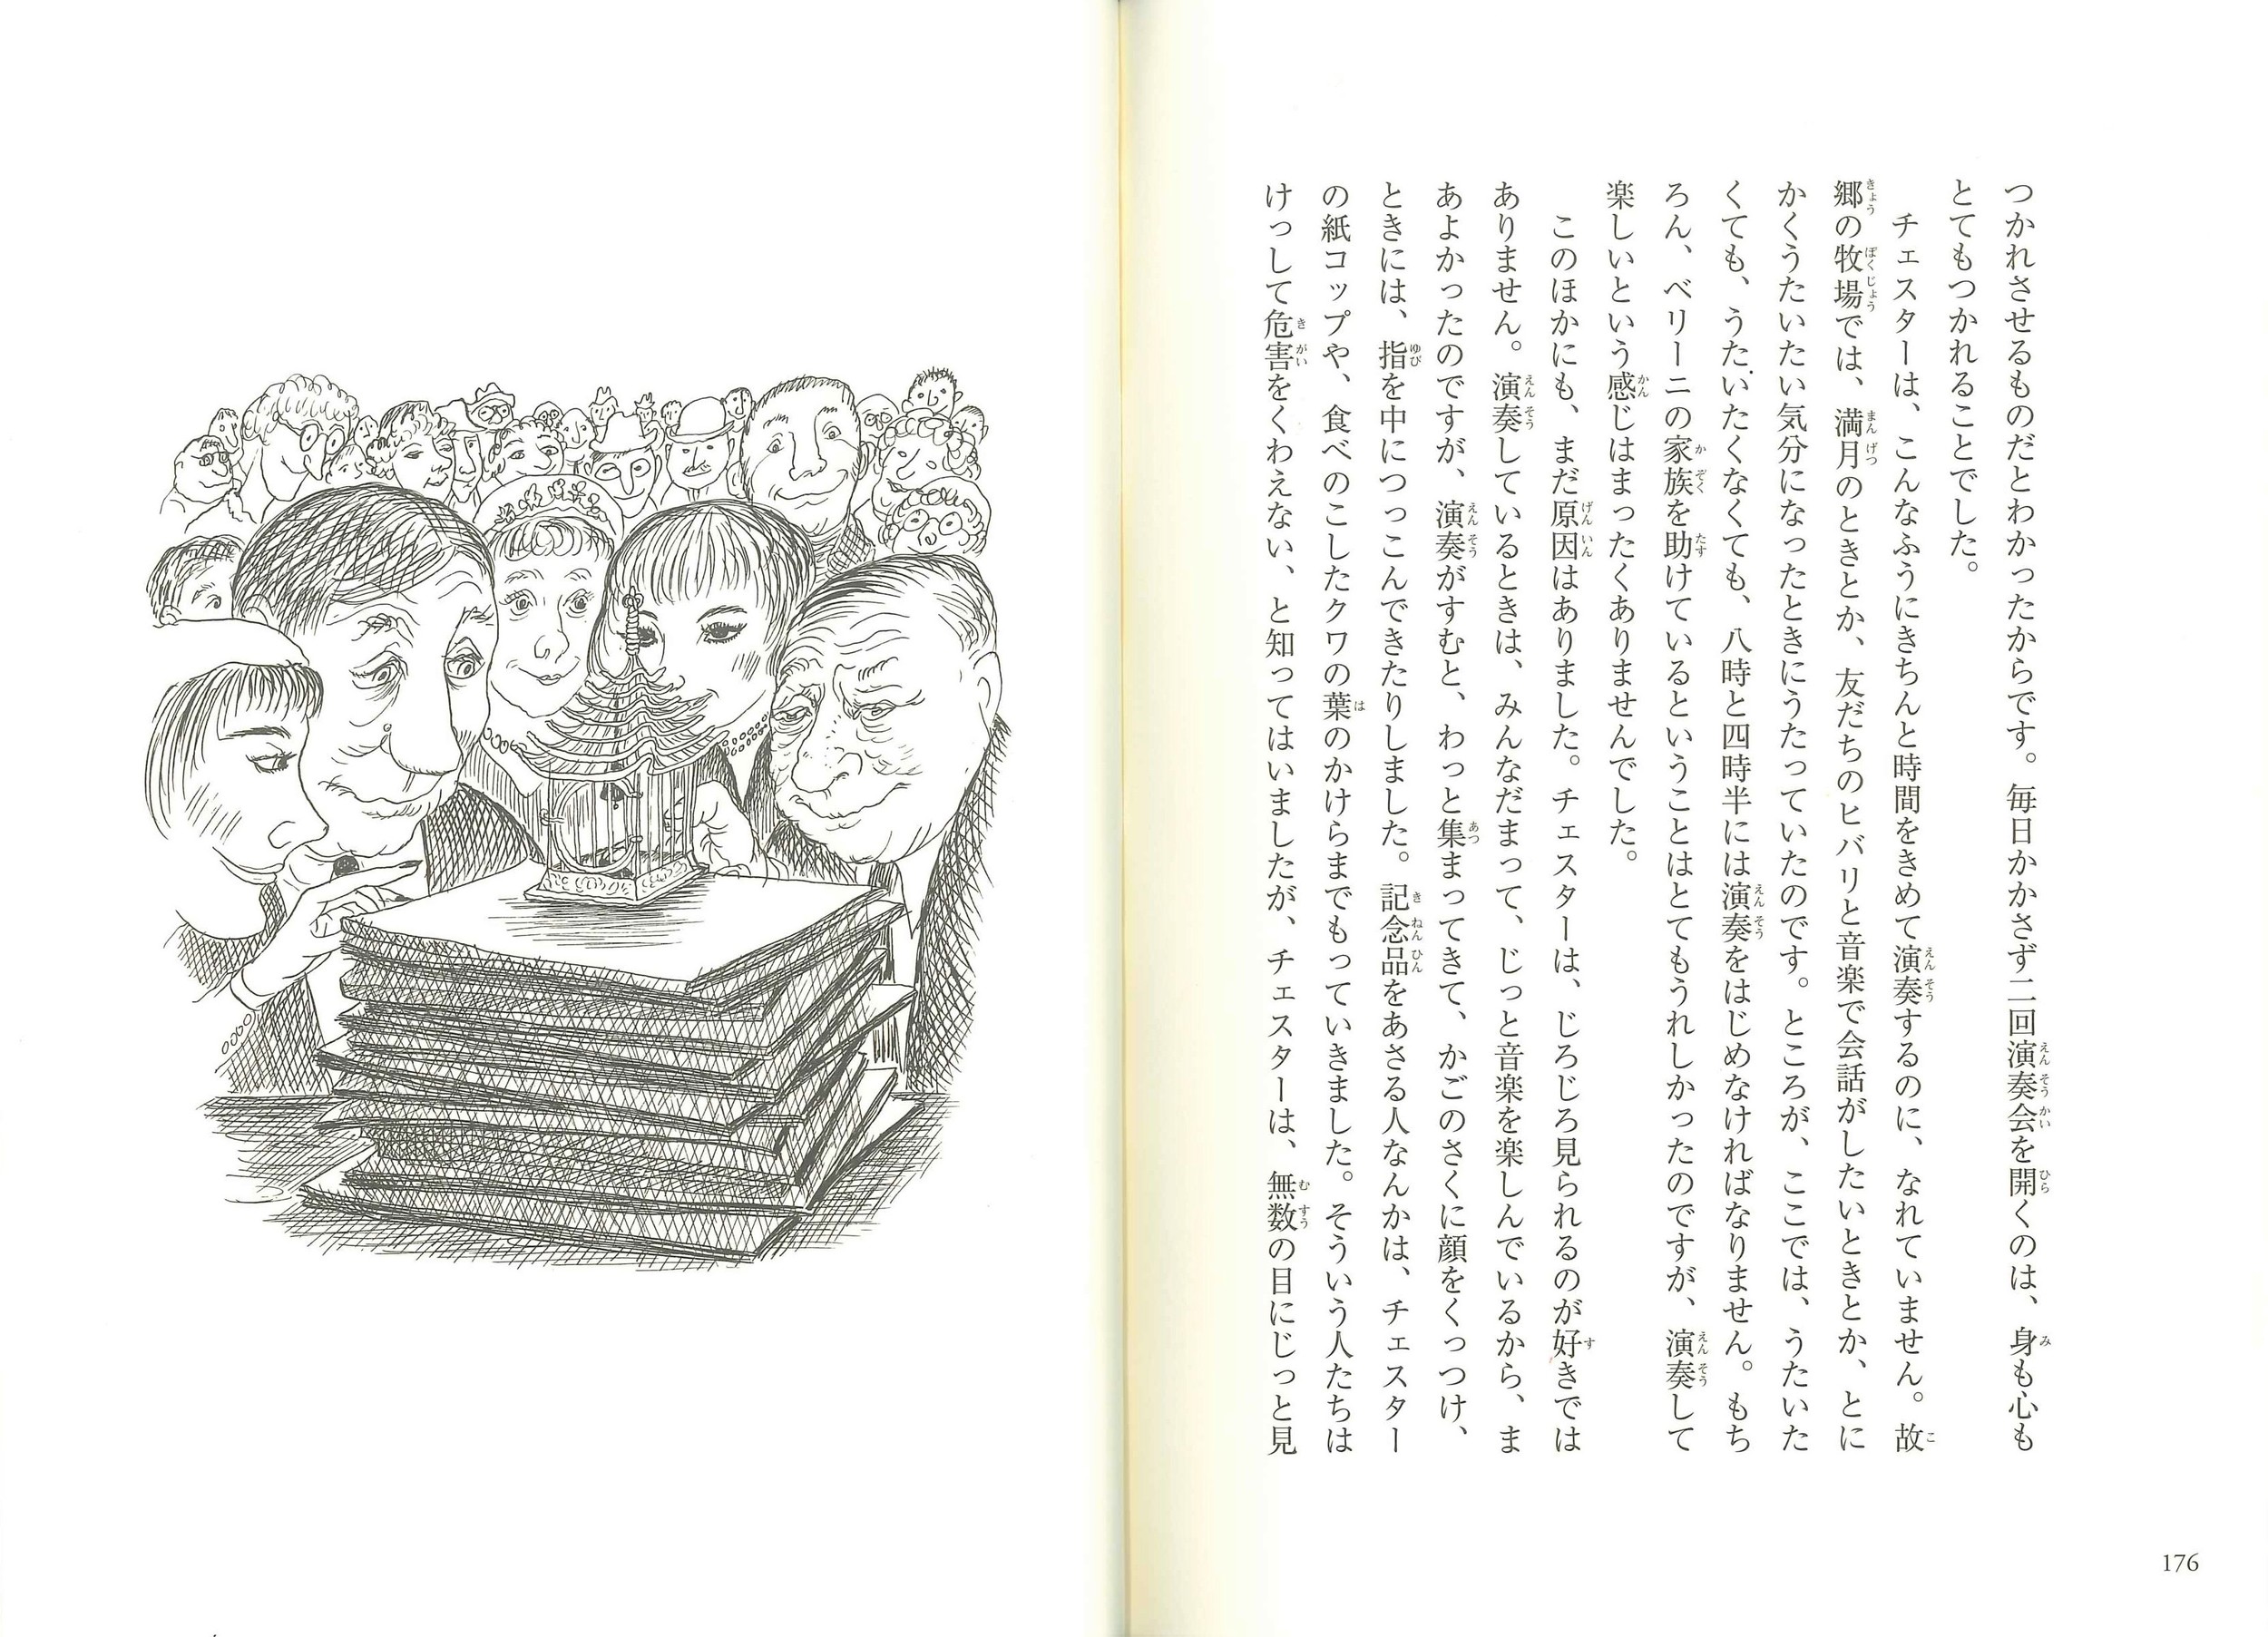 つかれさせるものだとわかったからです。毎日かかさず二回演奏会を開くのは、身も心も
とてもつかれることでした。
チェスターは、こんなふうにきちんと時間をきめて演奏するのに、なれていません。故
郷の牧場では、満月のときとか、友だちのヒバリと音楽で会話がしたいときとか、とに
かくうたいたい気分になったときにうたっていたのです。ところが、ここでは、うたいた
くても、うたいたくなくても、八時と四時半には演奏をはじめなければなりません。もち
ろん、ベリーニの家族を助けているということはとてもうれしかったのですが、演奏して
楽しいという感じはまったくありませんでした。
このほかにも、まだ原因はありました。チェスターは、じろじろ見られるのが好きでは
ありません。演奏しているときは、みんなだまって、じっと音楽を楽しんでいるから、ま
あよかったのですが、演奏がすむと、わっと集まってきて、かごのさくに顔をくっつけ、
ときには、指を中につっこんできたりしました。記念品をあさる人なんかは、チェスター
の紙コップや、食べのこしたクワの葉のかけらまでもっていきました。そういう人たちは
けっして危害をくわえない、と知ってはいましたが、チェスターは、無数の目にじっと見
176